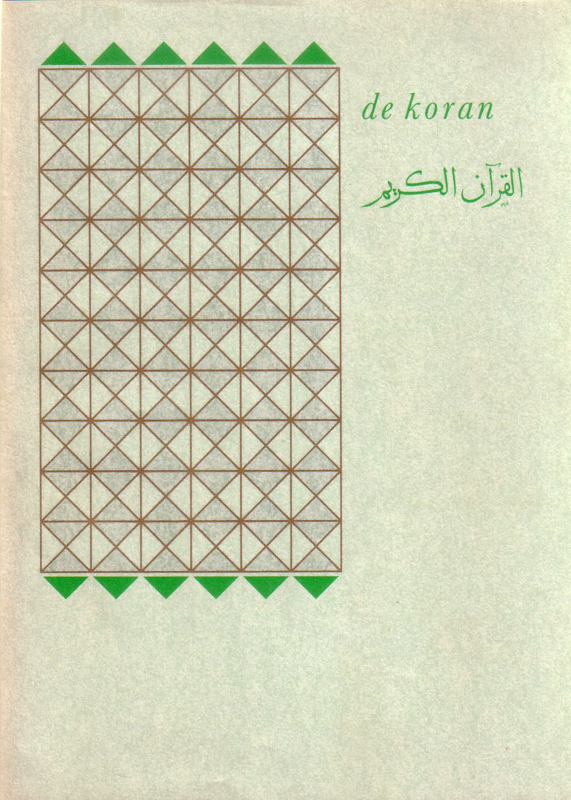 de koran
القرآن الكريم